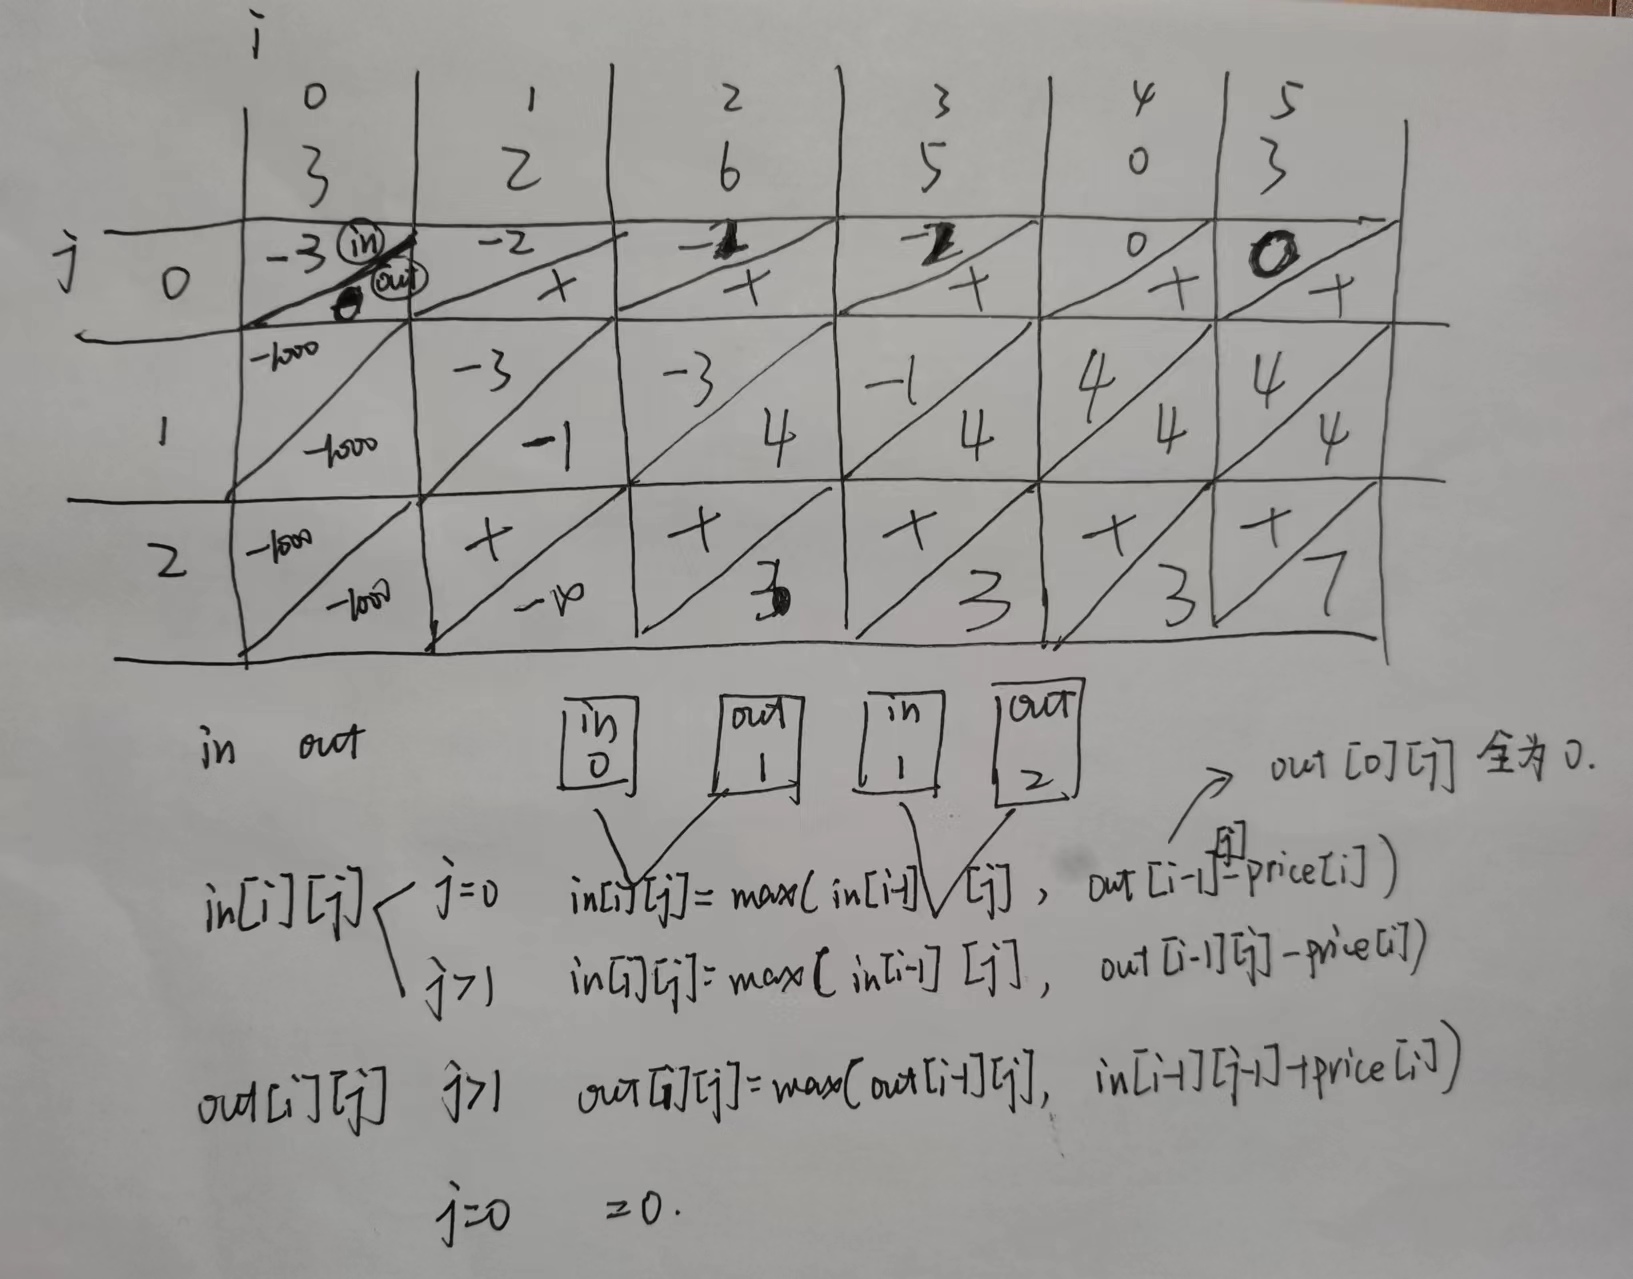 i
0 1 2 3 4 5
3 2 6 5 0 3
j 0 -3 in -2 0 0
0 out × × × × ×
1 -1000 -3 -3 -1 4 4
-1000 -1 4 4 4 4
2 -1000 × × × × ×
-1000 -∞ 3 3 3 7
in out in out in out
0 1 1 2
out [0][j] 全为 0.
in[i][j] j=0 in[i][j]=max(in[i-1][j], out[i-1][j]-price[i])
j>1 in[i][j]=max(in[i-1][j], out[i-1][j]-price[i])
out[i][j] j>1 out[i][j]=max(out[i-1][j], in[i-1][j-1]+price[i])
j=0 =0.